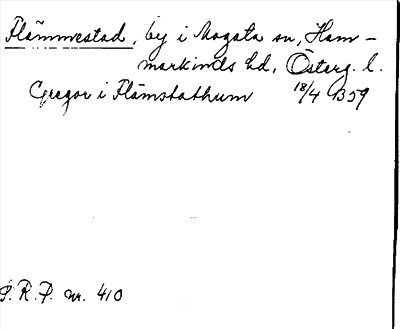 Flämmestad, by i Mogata sn, Ham-
markinds hd, Österg. l.
Gregor i Flämstathum 18/4 1359
S.R.P. nr. 410